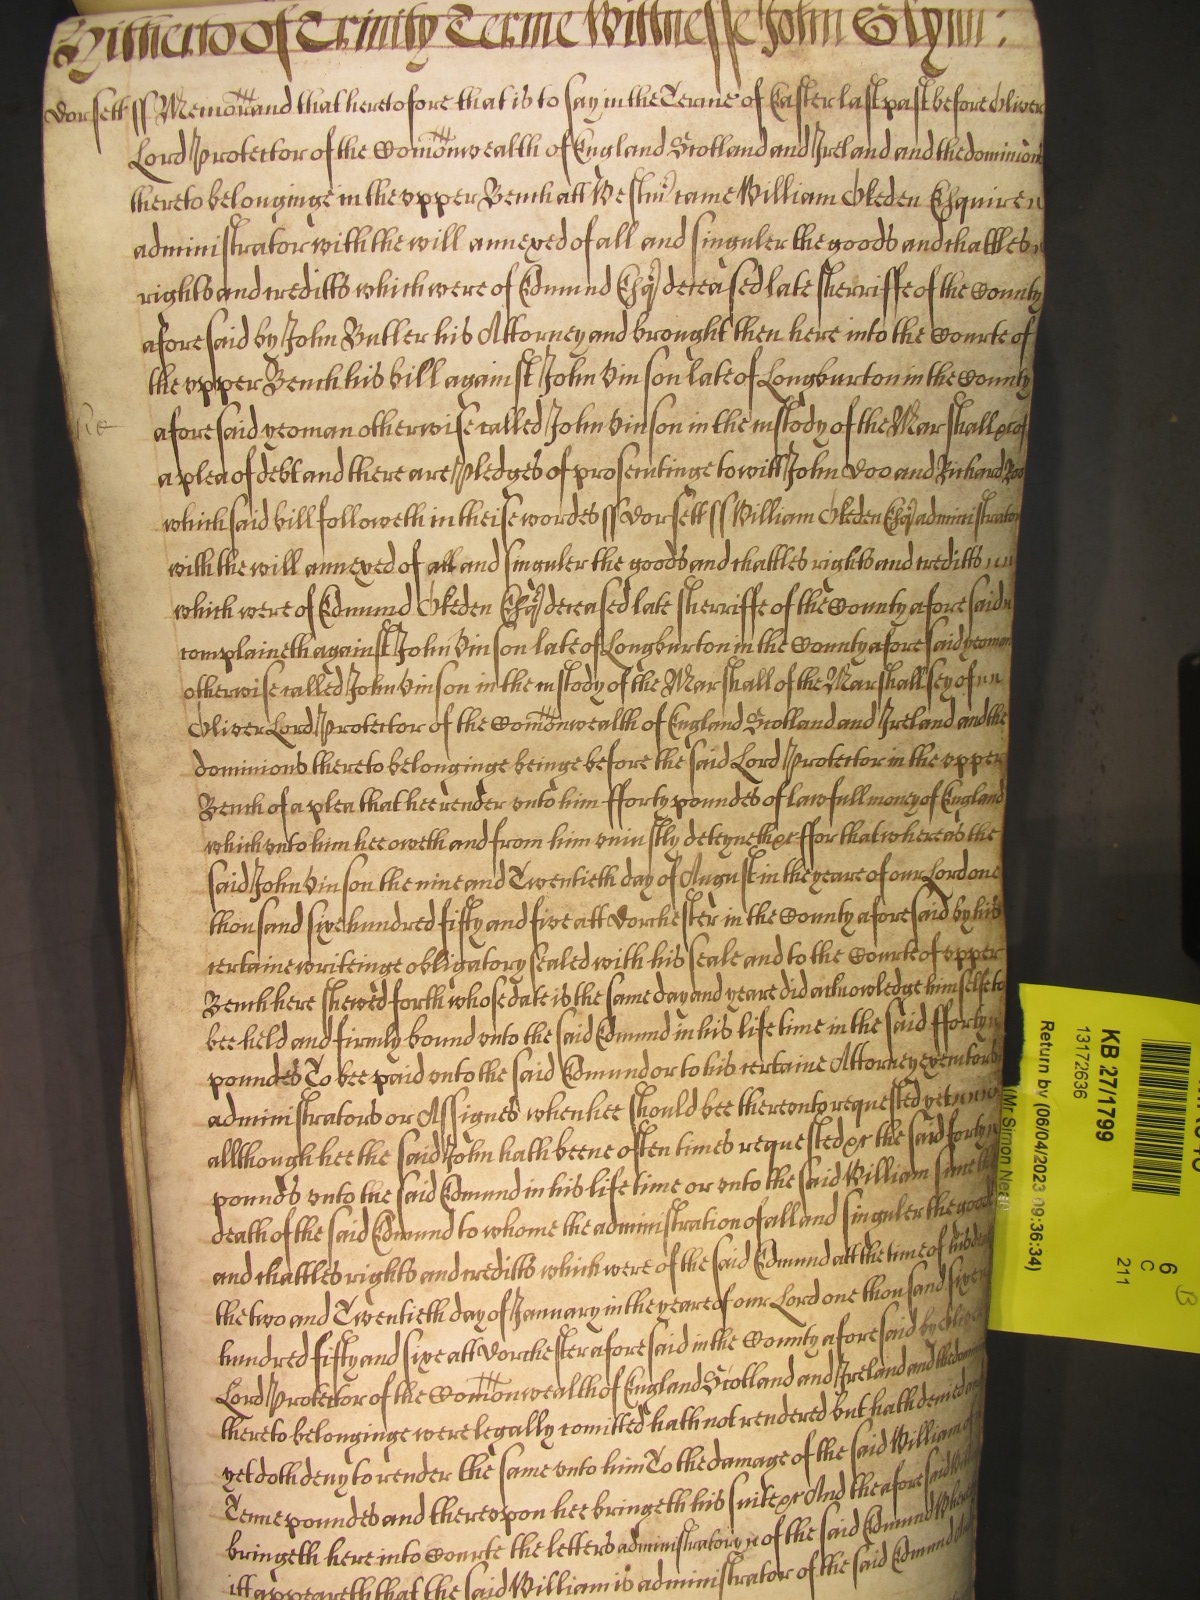 Hitherto Of Trinity Terme Wittnesse John Glynn:
Dorsett ss Memorand that heretofore that is to say in the Terme of Easter last past before Oliver
Lord Protector of the Comonwealth of England Scotland and Ireland and the dominions
thereto belonginge in the vpper Bench att Westmr came William Okeden Esquire
administrator with the will annexed of all and singuler the goods and chattles
rights and creditts which were of Edmund Esqr deceased late sherriffe of the County
aforesaid by John Butler his Attorney and brought then here into the Courte of
the vpper Bench his bill against John Vinson late of Longburton in the County
aforesaid yeoman otherwise called John Vinson in the custody of the Marshall &c of
a plea of debt and there are Pledges of prosecutinge to witt John Doo and Richard Roo
which said bill followeth in theise wordes ss Dorsett ss William Okeden Esqr administrator
with the will annexed of all and singuler the goods and chattles rights and creditts
which were of Edmund Okeden Esqr deceased late sherriffe of the County aforesaid
complaineth against John Vinson late of Longburton in the County aforesaid yeoman
otherwise called John Vinson in the custody of the Marshall of the Marshallsey of
Oliver Lord Protector of the Comonwealth of England Scotland and Ireland and the
dominions thereto belonginge beinge before the said Lord Protector in the vpper
Bench of a plea that hee render vnto him fforty poundes of lawfull money of England
which vnto him hee oweth and from him vniustly deteyneth &c ffor that whereas the
said John Vinson the nine and Twentieth day of August in the yeare of our Lord one
thousand sixe hundred fifty and five att Dorchester in the County aforesaid by his
certaine writeinge obligatory sealed with his seale and to the Courte of vpper
Bench here shewed forth whose date is the same day and yeare did acknowledge himselfe to
bee held and firmly bound vnto the said Edmund in his life time in the said fforty
poundes To bee paid vnto the said Edmund or to his certaine Attorney executors
administrators or Assignes when hee should bee therevnto requested yet
allthough hee the said John hath beene often times requested &c the said forty
pounds vnto the said Edmund in his life time or vnto the said William since the
death of the said Edmund to whome the administration of all and singuler the goods
and chattles rights and creditts which were of the said Edmund att the time of his death
the two and Twentieth day of January in the yeare of our Lord one thousand sixe
hundred fifty and sixe att Dorchester aforesaid in the County aforesaid by Oliver
Lord Protector of the Comonwealth of England Scotland and Ireland and the
thereto belonginge were legally comitted hath not rendered but hath denied and
yet doth deny to render the same vnto him To the damage of the said William of
Tenne poundes and therevpon hee bringeth his suite &c And the aforesaid William
bringeth here into Courte the letters administratory of the said Edmund Whereby
itt appeareth that the said William is administrator of the said Edmund
KB 27/1799
13172636
Return by (06/04/2023 09:36:34)
6
C
211